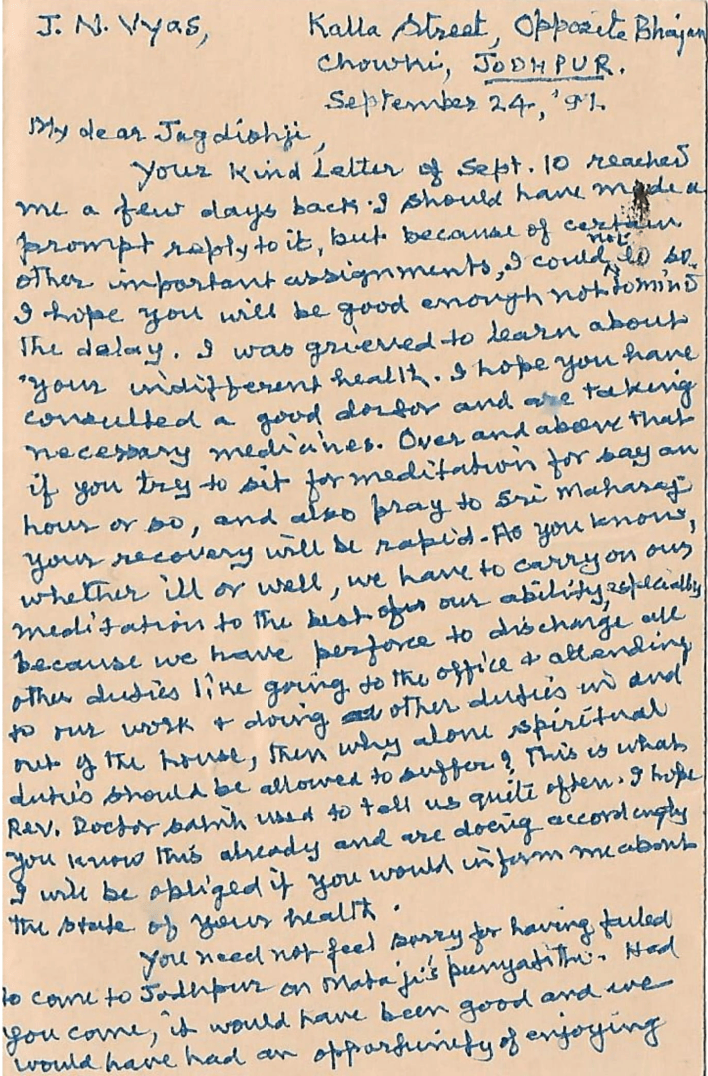 J. N. Vyas, Kalla Street, Opposite Bhajan
Chowki, JODHPUR.
September 24, '91.
My dear Jagdishji,
Your kind letter of Sept. 10 reached
me a few days back. I should have made a
prompt reply to it, but because of certain
other important assignments, I could not do so.
I hope you will be good enough not to mind
the delay. I was grieved to learn about
your indifferent health. I hope you have
consulted a good doctor and are taking
necessary medicines. Over and above that
if you try to sit for meditation for say an
hour or so, and also pray to Sri Maharaj
your recovery will be rapid. As you know,
whether ill or well, we have to carry on our
meditation to the best of our ability, especially
because we have perforce to discharge all
other duties like going to the office & attending
to our work & doing other duties in and
out of the house, then why alone spiritual
duties should be allowed to suffer? This is what
Rev. Doctor Sahib used to tell us quite often. I hope
you know this already and are doing accordingly
I will be obliged if you would inform me about
the state of your health.
You need not feel sorry for having failed
to come to Jodhpur on Mataji's punyatithi. Had
you come, it would have been good and we
would have had an opportunity of enjoying